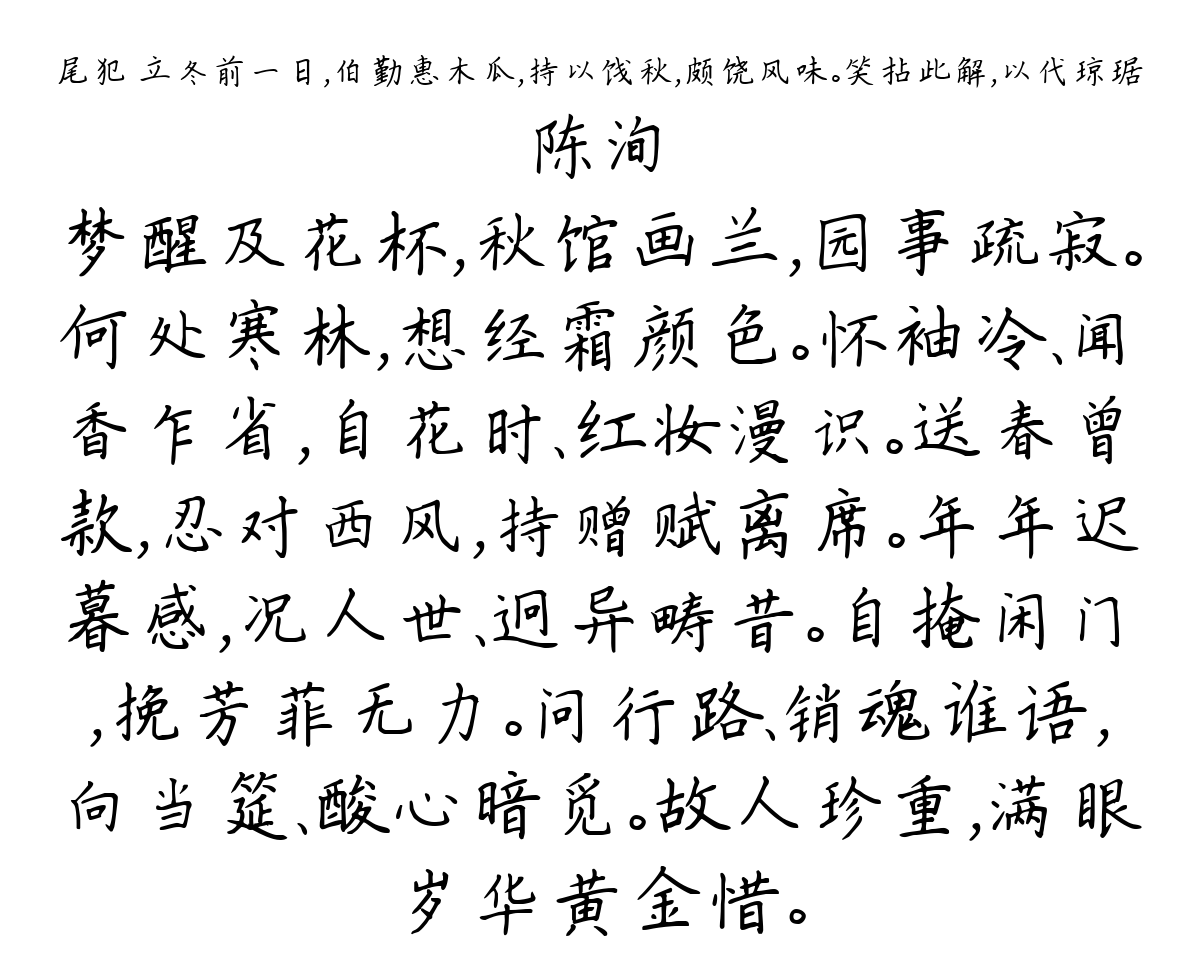 尾犯 立冬前一日,伯勤惠木瓜,持以饯秋,颇饶风味。笑拈此解,以代琼琚
陈洵
梦醒及花杯,秋馆画兰,园事疏寂。
何处寒林,想经霜颜色。怀袖冷、闻
香乍省,自花时、红妆漫识。送春曾
款,忍对西风,持赠赋离席。年年迟
暮感,况人世、迥异畴昔。自掩闲门
,挽芳菲无力。问行路、销魂谁语,
向当筵、酸心暗觅。故人珍重,满眼
岁华黄金惜。